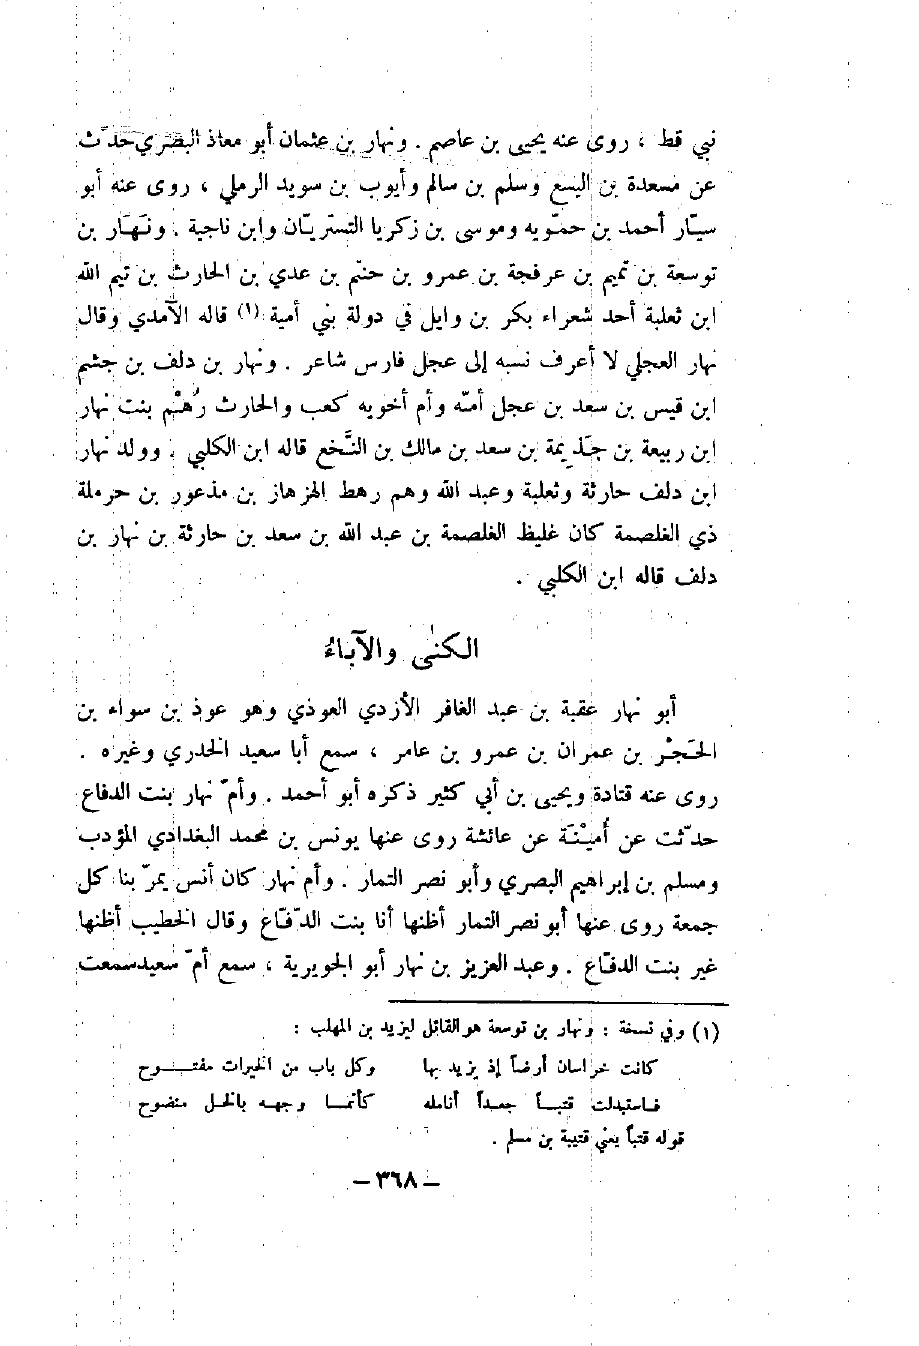 نبي قط ، روى عنه يحيى بن عاصم . ونهار بن عثمان أبو معاذ البصري حدّث
عن مسعدة بن اليسع وسلم بن سالم وأيوب بن سويد الرملي ، روى عنه أبو
سيّار أحمد بن حمّويه وموسى بن زكريا التستريّان وابن ناجية . ونَهَار بن
توسعة بن تميم بن عرفجة بن عمرو بن حنتم بن عدي بن الحارث بن تيم الله
ابن ثعلبة أحد شعراء بكر بن وايل في دولة بني أمية (١) قاله الآمدي وقال
نهار العجلي لا أعرف نسبه إلى عجل فارس شاعر . ونهار بن دلف بن جشم
ابن قيس بن سعد بن عجل أمّه وأم أخويه كعب والحارث رُهْم بنت نهار
ابن ربيعة بن جَذِيمة بن سعد بن مالك بن النَّخع قاله ابن الكلبي . وولد نهار
ابن دلف حارثة وثعلبة وعبد الله وهم رهط الهزهاز بن مذعور بن حرملة
ذي الغلصمة كان غليظ الغلصمة بن عبد الله بن سعد بن حارثة بن نهار بن
دلف قاله ابن الكلبي .
الكنى والآباء
أبو نهار عقبة بن عبد الغافر الأزدي العوذي وهو عوذ بن سواء بن
الحَجْر بن عمران بن عمرو بن عامر ، سمع أبا سعيد الخدري وغيره .
روى عنه قتادة ويحيى بن أبي كثير ذكره أبو أحمد . وأمّ نهار بنت الدفاع
حدّثت عن أُمَيْنَة عن عائشة روى عنها يونس بن محمد البغدادي المؤدب
ومسلم بن إبراهيم البصري وأبو نصر التمار . وأم نهار كان أنس يمرّ بنا كل
جمعة روى عنها أبو نصر التمار أظنها أنا بنت الدّفّاع وقال الخطيب أظنها
غير بنت الدفّاع . وعبد العزيز بن نهار أبو الجويرية ، سمع أمّ سعيد سمعت
(١) وفي نسخة : ونهار بن توسعة هو القائل ليزيد بن المهلب :
كانت خراسان أرضاً إذ يزيد بها وكل باب من الخيرات مفتـــوح
فاستبدلت قتبـاً جعداً أنامله كأنمـا وجهـه بالخل منضوح
قوله قتباً يعني قتيبة بن مسلم .
– ٣٦٨ –